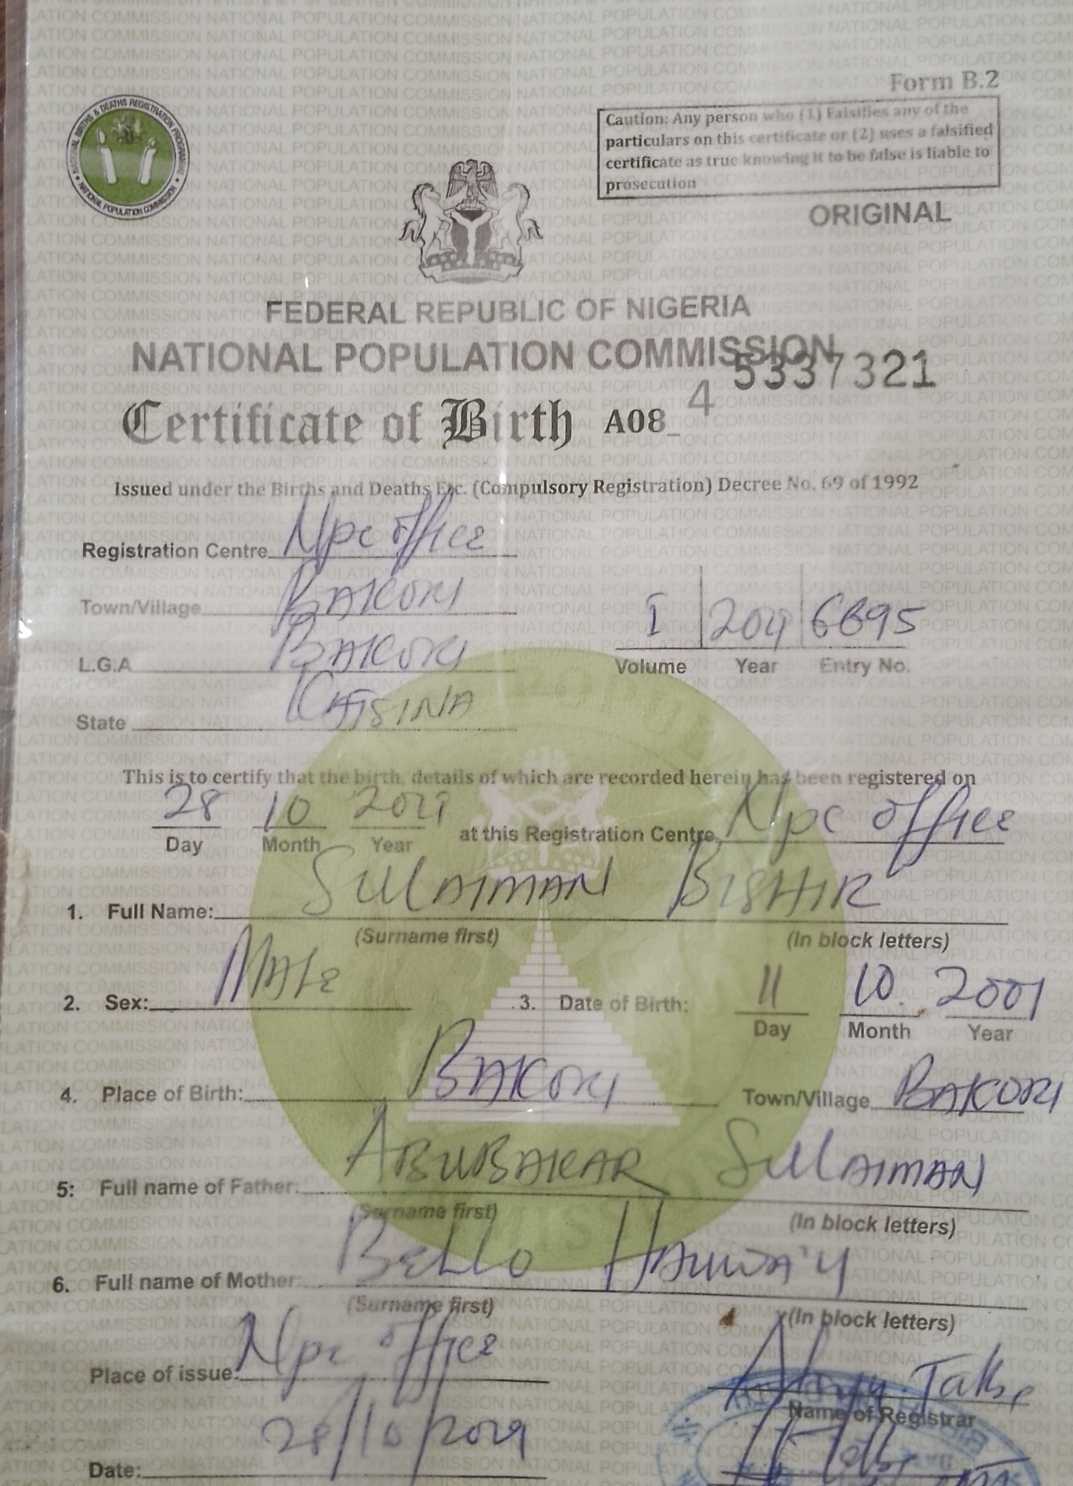 Form B.2
Caution: Any person who (1) Falsifies any of the
particulars on this certificate or (2) uses a falsified
certificate as true knowing it to be false is liable to
prosecution
ORIGINAL
NATIONAL POPULATION COMMISSION
FEDERAL REPUBLIC OF NIGERIA
NATIONAL POPULATION COMMISSION
5337321
Certificate of Birth A08_ 4
Issued under the Births and Deaths Etc. (Compulsory Registration) Decree No. 69 of 1992
Registration Centre Npc office
Town/Village BAKORI
L.G.A BAKORI
I 2019 6695
Volume Year Entry No.
State KATSINA
This is to certify that the birth, details of which are recorded herein has been registered on
28 10 2019 at this Registration Centre Npc office
Day Month Year
1. Full Name: SULAIMAN BISHIR
(Surname first) (In block letters)
2. Sex: MALE 3. Date of Birth: 11 10. 2001
Day Month Year
4. Place of Birth: BAKORI Town/Village BAKORI
5: Full name of Father: ABUBAKAR SULAIMAN
(Surname first) (In block letters)
6. Full name of Mother: BELLO HAUWA'U
(Surname first) (In block letters)
Place of issue: Npc office
Name of Registrar
Date: 28/10/2019